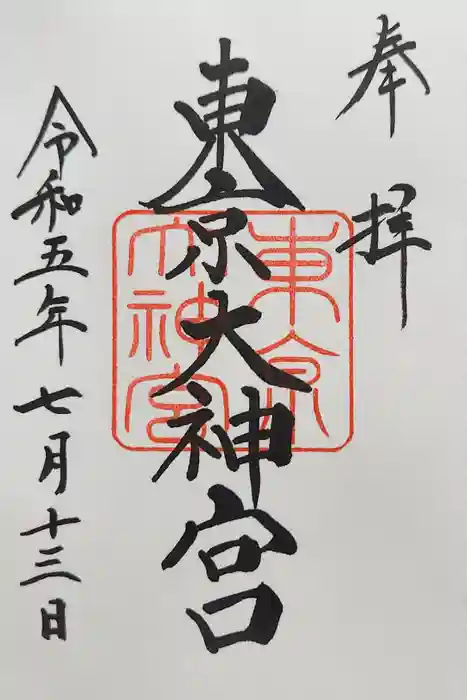 奉拝
東京大神宮
東京
大神宮
令和五年七月十三日